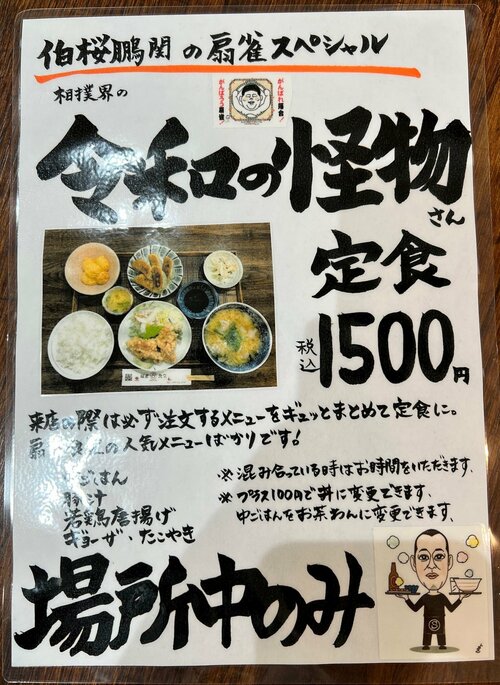 伯桜鵬関の扇雀スペシャル
相撲界の
がんばれ屋台!
がんばろう
令和の怪物
さん
定食
税込
1500円
来店の際は必ず注文するメニューをギュッとまとめて定食に。
の人気メニューばかりです!
中ごはん
豚汁
若鶏唐揚げ
ギョーザ・たこやき
※混み合っている時はお時間をいただきます。
※プラス100円で丼に変更できます。
中ごはんをお茶わんに変更できます。
場所中のみ